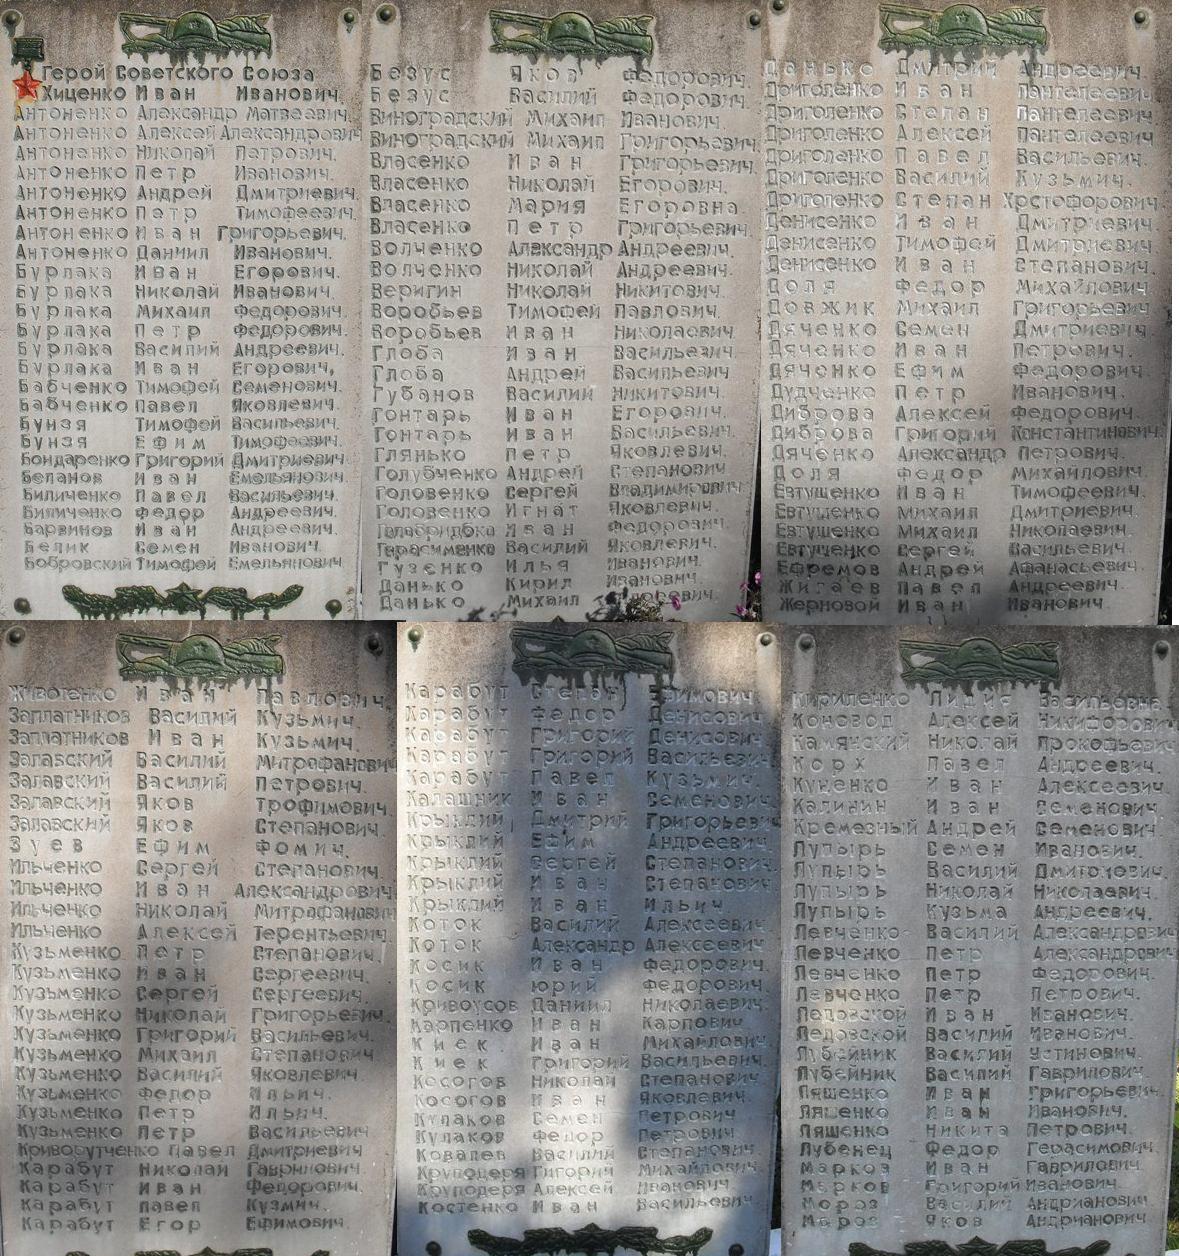 Герой Советского Союза
Хиценко Иван Иванович.
Антоненко Александр Матвеевич.
Антоненко Алексей Александрович.
Антоненко Николай Петрович.
Антоненко Петр Иванович.
Антоненко Андрей Дмитриевич.
Антоненко Петр Тимофеевич.
Антоненко Иван Григорьевич.
Антоненко Даниил Иванович.
Бурлака Иван Егорович.
Бурлака Николай Иванович.
Бурлака Михаил Федорович.
Бурлака Петр Федорович.
Бурлака Василий Андреевич.
Бурлака Иван Егорович,
Бабченко Тимофей Семенович.
Бабченко Павел Яковлевич.
Бунзя Тимофей Васильевич.
Бунзя Ефим Тимофеевич.
Бондаренко Григорий Дмитриевич.
Беланов Иван Емельянович.
Биличенко Павел Васильевич.
Биличенко Федор Андреевич.
Барвинов Иван Андреевич.
Белик Семен Иванович.
Бобровский Тимофей Емельянович.
Безус Яков Федорович.
Безус Василий Федорович.
Виноградский Михаил Иванович.
Виноградский Михаил Григорьевич.
Власенко Иван Григорьевич.
Власенко Николай Егорович.
Власенко Мария Егоровна.
Власенко Петр Григорьевич.
Волченко Александр Андреевич.
Волченко Николай Андреевич.
Веригин Николай Никитович.
Воробьев Тимофей Павлович.
Воробьев Иван Николаевич.
Глоба Иван Васильевич.
Глоба Андрей Васильевич.
Губанов Василий Никитович.
Гонтарь Иван Егорович.
Гонтарь Иван Васильевич.
Глянько Петр Яковлевич.
Голубченко Андрей Степанович.
Головенко Сергей Владимирович.
Головенко Игнат Яковлевич.
Иван Федорович.
Герасименко Василий Яковлевич.
Гузенко Илья Иванович.
Данько Кирил Иванович.
Данько Михаил
Данько Дмитрий Андреевич.
Дриголенко Иван Пантелеевич.
Дриголенко Степан Пантелеевич.
Дриголенко Алексей Пантелеевич.
Дриголенко Павел Васильевич.
Дриголенко Василий Кузьмич.
Дриголенко Степан Хрстофорович.
Денисенко Иван Дмитриевич.
Денисенко Тимофей Дмитриевич.
Денисенко Иван Степанович.
Доля Федор Михайлович.
Довжик Михаил Григорьевич.
Дяченко Семен Дмитриевич.
Дяченко Иван Петрович.
Дяченко Ефим Федорович.
Дудченко Петр Иванович.
Диброва Алексей Федорович.
Диброва Григорий Константинович.
Дяченко Александр Петрович.
Доля Федор Михайлович.
Евтушенко Иван Тимофеевич.
Евтушенко Михаил Дмитриевич.
Евтушенко Михаил Николаевич.
Евтушенко Сергей Васильевич.
Ефремов Андрей Афанасьевич.
Жигаев Павел Андреевич.
Жерновой Иван Иванович
Иван Павлович.
Заплатников Василий Кузьмич.
Заплатников Иван Кузьмич.
Залавский Василий Митрафанович
Залавский Василий Петрович.
Залавский Яков Трофимович.
Залавский Яков Степанович.
Зуев Ефим Фомич.
Ильченко Сергей Степанович.
Ильченко Иван Александрович.
Ильченко Николай Митрафанович
Ильченко Алексей Терентьевич.
Кузьменко Петр Степанович.
Кузьменко Иван Сергеевич.
Кузьменко Сергей Сергеевич.
Кузьменко Николай Григорьевич.
Кузьменко Григорий Васильевич.
Кузьменко Михаил Степанович.
Кузьменко Василий Яковлевич.
Кузьменко Федор Ильич.
Кузьменко Петр Ильич.
Кузьменко Петр Васильевич
Криворутченко Павел Дмитриевич
Карабут Николай Гаврилович.
Карабут Иван Федорович.
Карабут Павел Кузмич.
Карабут Егор Ефимович.
Карабут Степан Ефимович
Карабут Федор Денисович
Карабут Григорий Денисович
Карабут Григорий Васильевич
Карабут Павел Кузьмич.
Калашник Иван Семенович.
Крыклий Дмитрий Григорьевич
Крыклий Ефим Андреевич
Крыклий Сергей Степанович.
Крыклий Иван Степанович
Крыклий Иван Ильич
Коток Василий Алексеевич
Коток Александр Алексеевич
Косик Иван Федорович.
Косик Юрий Федорович.
Кривоусов Даниил Николаевич.
Карпенко Иван Карпович
Киек Иван Михайлович.
Киек Григорий Васильевич.
Косогов Николай Степанович.
Косогов Иван Яковлевич.
Кулаков Семен Петрович
Кулаков Федор Петрович
Ковалев Василий Степанович.
Круподеря Гигорий Михайлович
Круподеря Алексей Иванович
Костенко Иван Васильевич
Кириленко Лидия Васильевна.
Коновод Алексей Никифорович
Камянский Николай Прокофьевич
Корх Павел Андреевич.
Куценко Иван Алексеевич.
Калинин Иван Семенович.
Кремезный Андрей Семенович.
Лупырь Семен Иванович.
Лупырь Василий Дмитриевич.
Лупырь Николай Николаевич.
Лупырь Кузьма Андреевич.
Левченко Василий Александрович
Левченко Петр Александрович
Левченко Петр Федорович.
Левченко Петр Петрович.
Ледовской Иван Иванович.
Ледовской Василий Иванович.
Лубейник Василий Устинович.
Лубейник Василий Гаврилович.
Ляшенко Иван Григорьевич
Ляшенко Иван Иванович.
Ляшенко Никита Петрович.
Лубенец Федор Герасимович.
Марков Иван Гаврилович.
Марков Григорий Иванович.
Мороз Василий Андрианович
Мороз Яков Андрианович